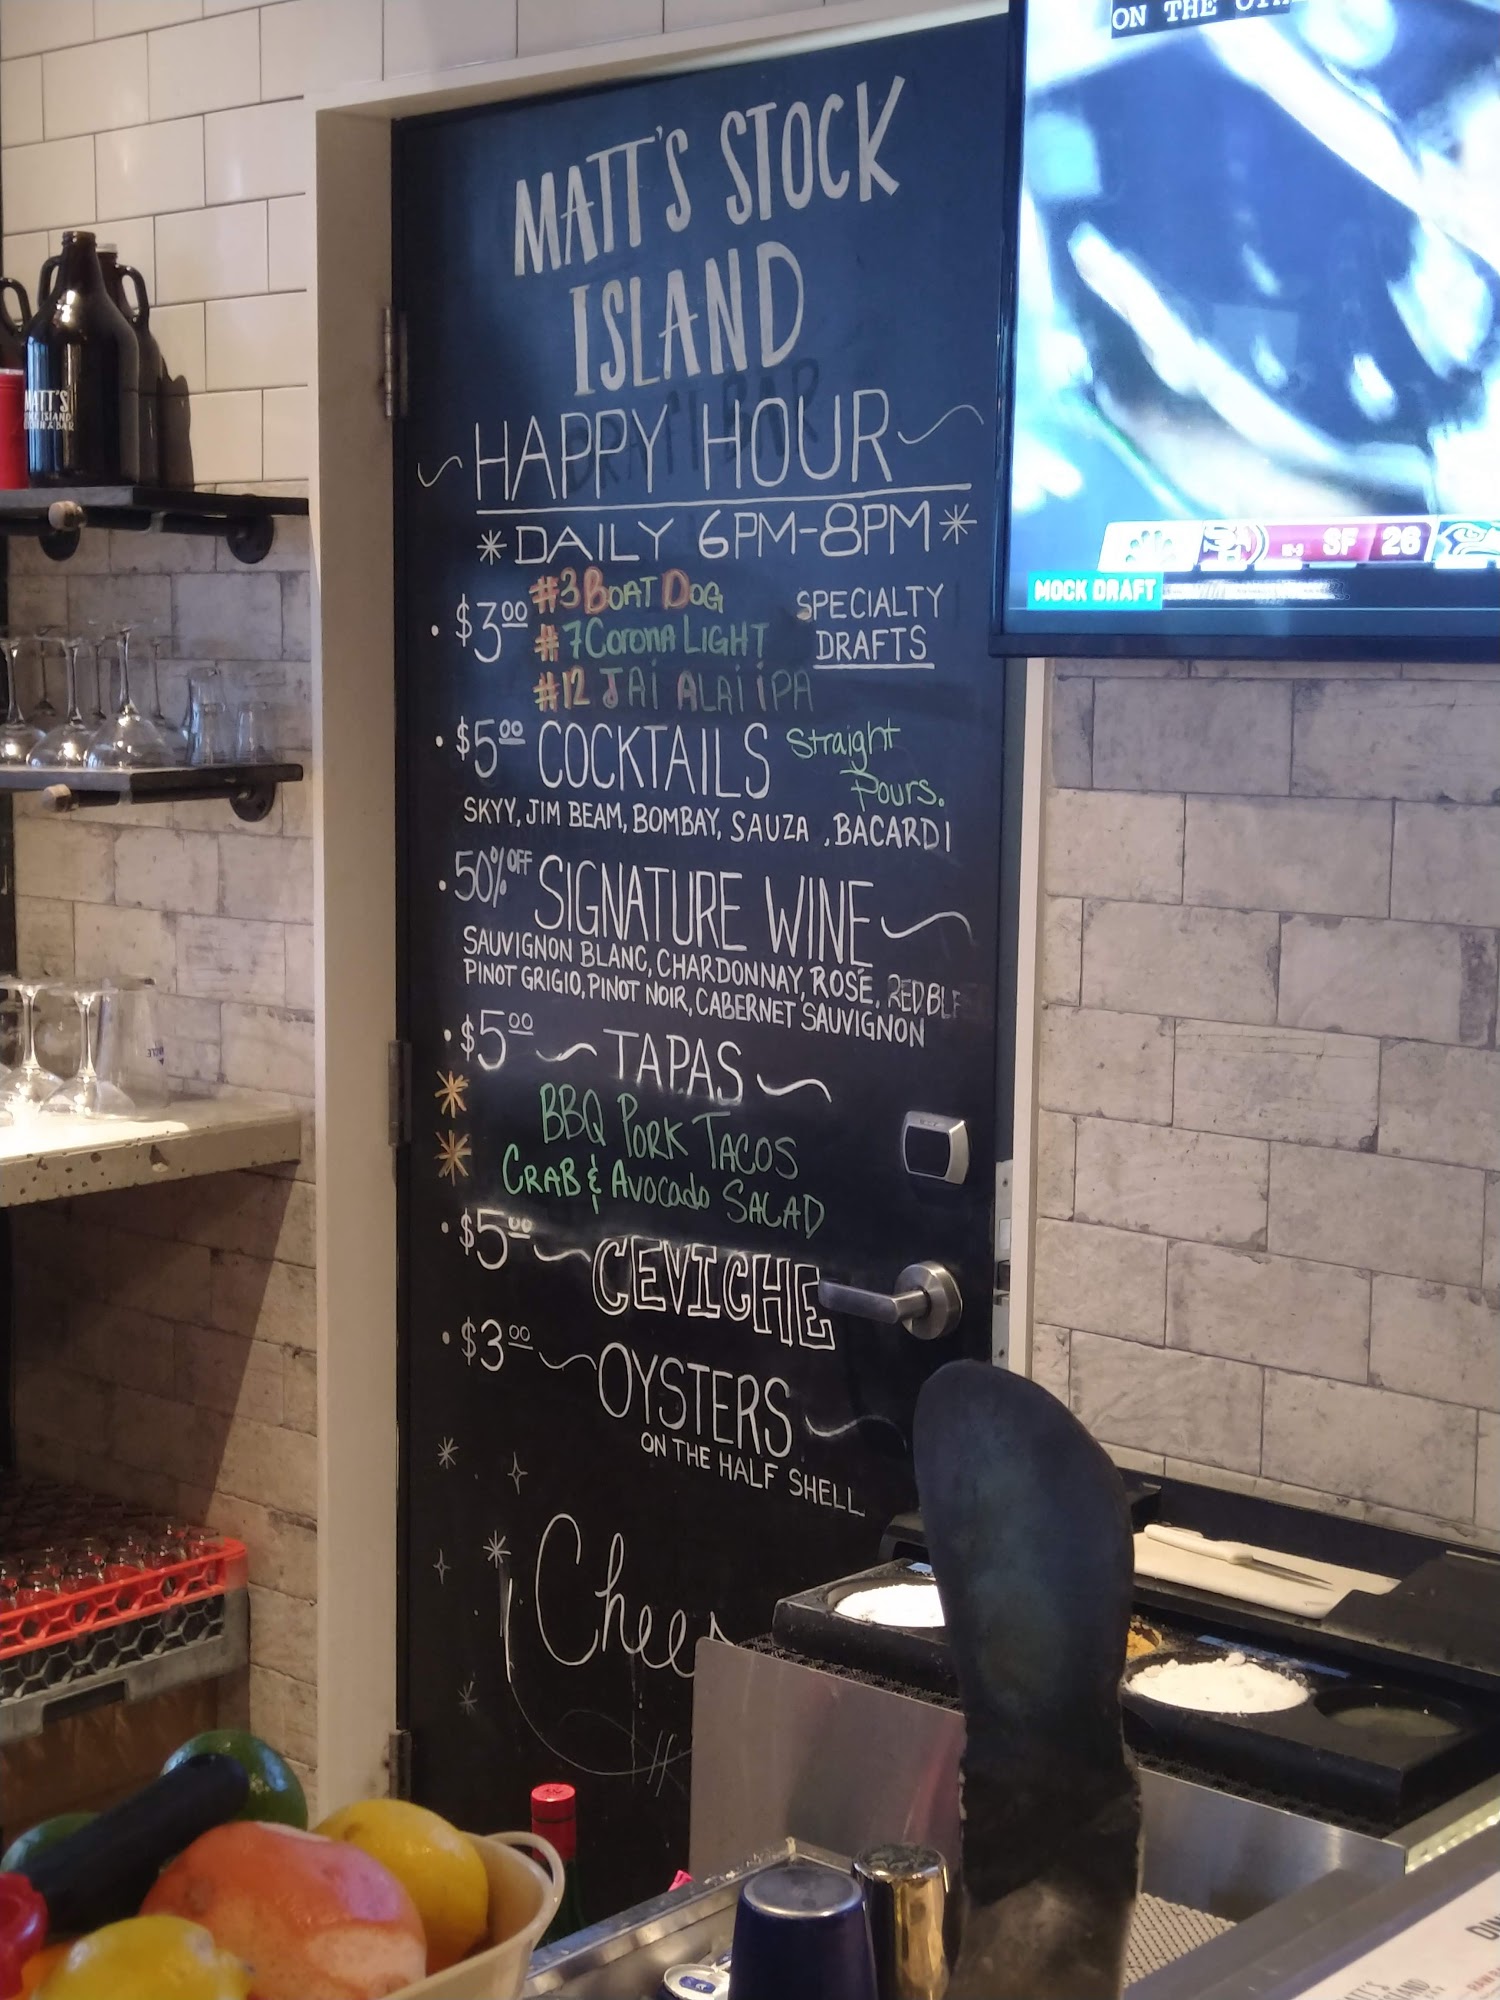 MATT'S STOCK
ISLAND
HAPPY HOUR
* DAILY 6PM-8PM *
• $3.00 #3 BOAT DOG
#7 Corona LIGHT
#12 JAi ALAi iPA
SPECIALTY
DRAFTS
• $5.00 COCKTAILS Straight
Pours.
SKYY, JIM BEAM, BOMBAY, SAUZA, BACARDI
• 50% OFF SIGNATURE WINE
SAUVIGNON BLANC, CHARDONNAY, ROSÉ, RED BLE
PINOT GRIGIO, PINOT NOIR, CABERNET SAUVIGNON
• $5.00 TAPAS
* BBQ PORK TACOS
* CRAB & AVOCADO SALAD
• $5.00 CEVICHE
• $3.00 OYSTERS
ON THE HALF SHELL
Chee
ON THE
SF 26
MOCK DRAFT
MATT'S